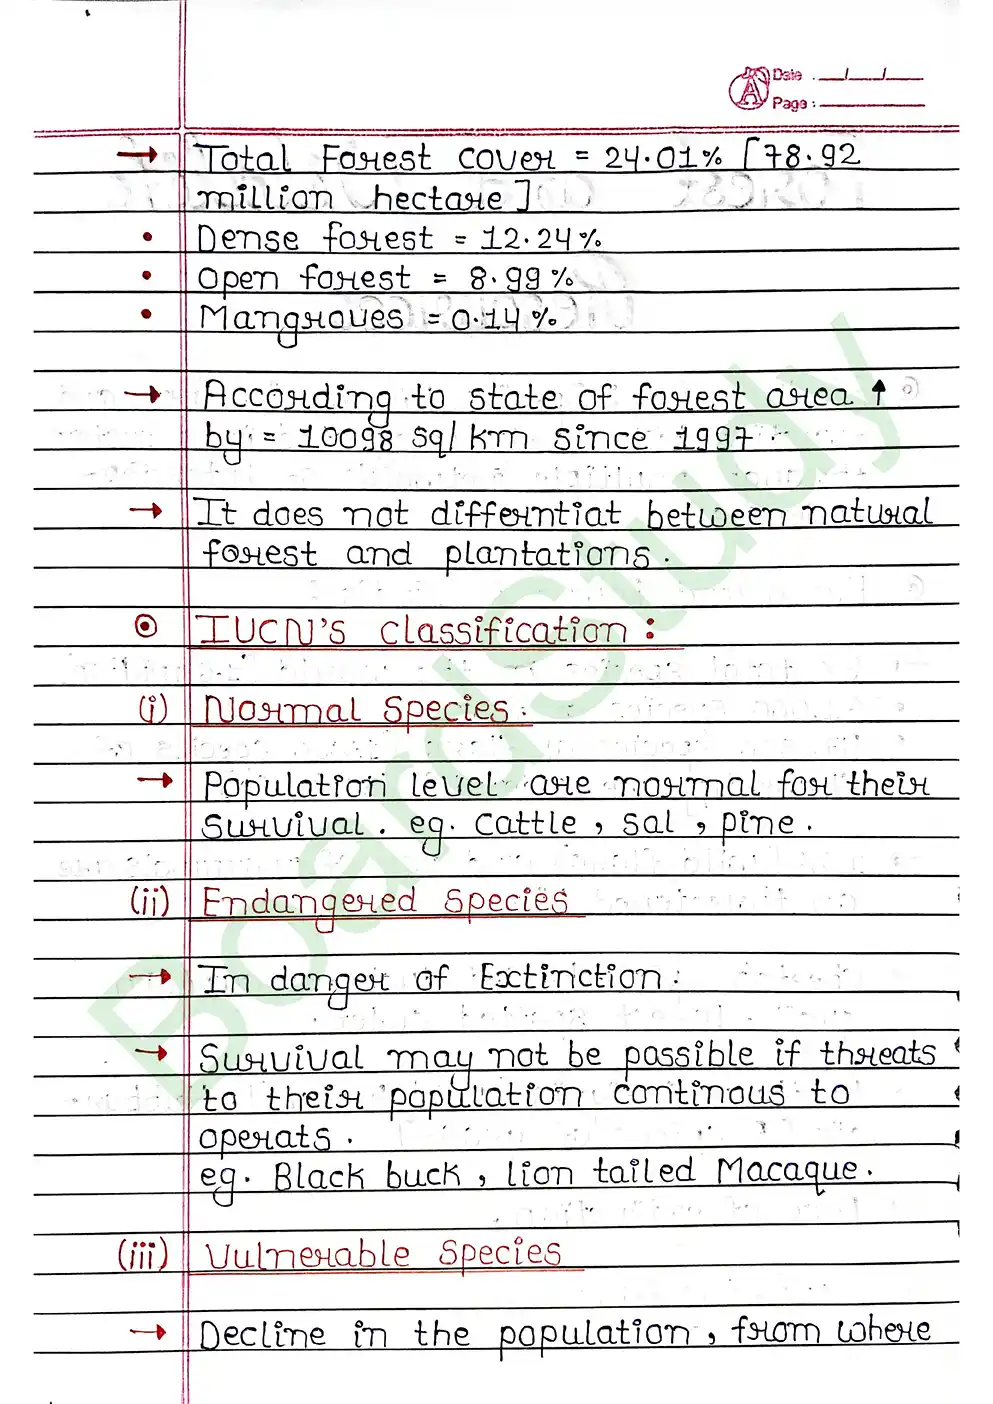 Date : __/__/__
Page :
→ Total Forest cover = 24.01% [78.92
million hectare]
• Dense forest = 12.24%
• Open forest = 8.99%
• Mangroves = 0.14%
→ According to state of forest area ↑
by = 10098 sq/km since 1997
→ It does not differntiat between natural
forest and plantations.
⊙ IUCN's classification :
(i) Normal Species.
→ Population level are normal for their
survival. eg. cattle, sal, pine.
(ii) Endangered Species
→ In danger of Extinction.
→ Survival may not be possible if threats
to their population continous to
operats.
eg. Black buck, lion tailed Macaque.
(iii) Vulnerable Species
→ Decline in the population, from where
BoardStudy